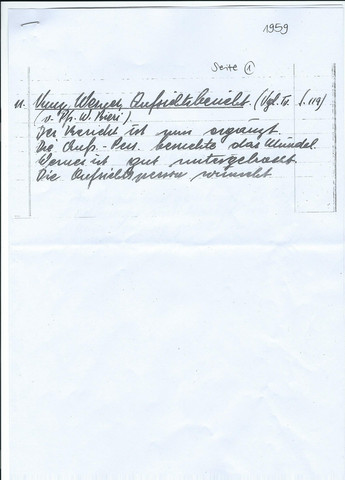 1959
Seite 1
11. Werner, Aufsichtsbericht. (Vgl. Tr. S. 119)
(v. Pfr. W. Bieri)
Der Bericht ist nun ergänzt.
Die Aufs.-Pers. berichtet das Mündel
Werner ist gut untergebracht.
Die Aufsichtsperson wünscht